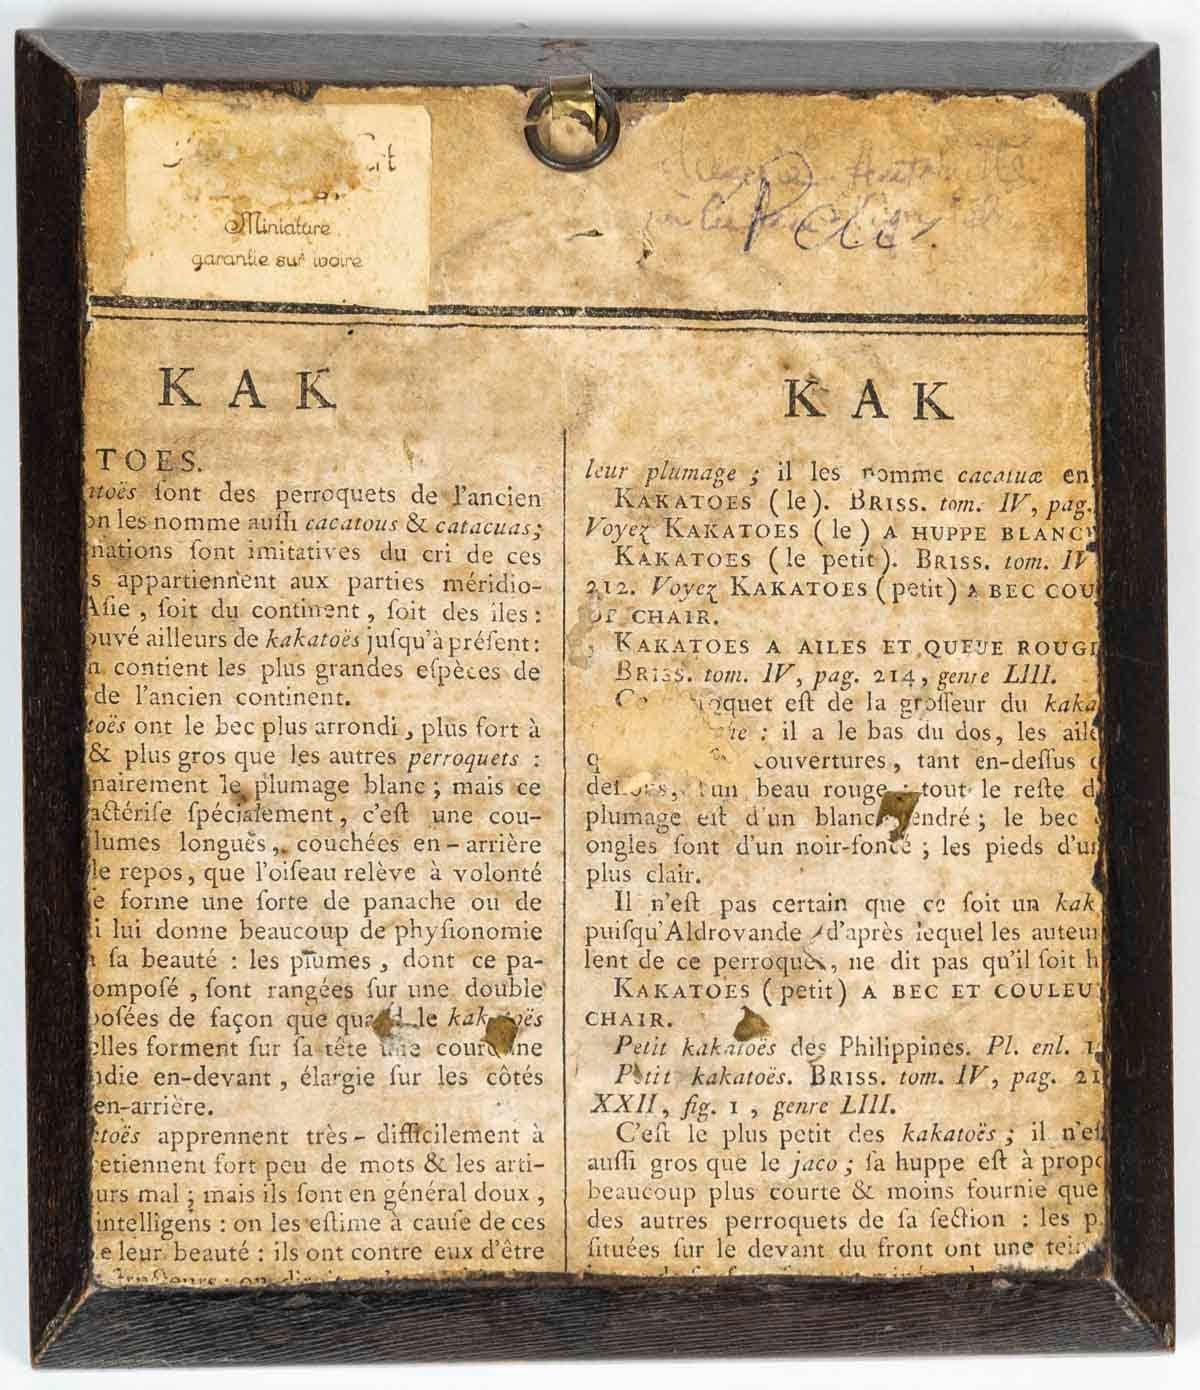 Miniature
garantie sur ivoire
KAK
TOES.
toës sont des perroquets de l'ancien
on les nomme aussi cacatous & catacuas;
nations sont imitatives du cri de ces
s appartiennent aux parties méridio-
Asie, soit du continent, soit des iles:
ouvé ailleurs de kakatoës jusqu'à présent:
contient les plus grandes espèces de
de l'ancien continent.
toës ont le bec plus arrondi, plus fort à
& plus gros que les autres perroquets :
nairement le plumage blanc; mais ce
actérise spécialement, c'est une cou-
lumes longues, couchées en-arrière
le repos, que l'oiseau relève à volonté
e forme une sorte de panache ou de
i lui donne beaucoup de physionomie
sa beauté : les plumes, dont ce pa-
omposé, sont rangées sur une double
posées de façon que quand le kakatoës
elles forment sur sa tête une couronne
ndie en-devant, élargie sur les côtés
en-arrière.
toës apprennent très-difficilement à
etiennent fort peu de mots & les arti-
urs mal; mais ils sont en général doux,
intelligens : on les estime à cause de ces
e leur beauté : ils ont contre eux d'être
KAK
leur plumage; il les nomme cacatuæ en
KAKATOES (le). BRISS. tom. IV, pag.
Voyez KAKATOES (le) A HUPPE BLANC
KAKATOES (le petit). BRISS. tom. IV
212. Voyez KAKATOES (petit) A BEC COU
DE CHAIR.
KAKATOES A AILES ET QUEUE ROUG
BRISS. tom. IV, pag. 214, genre LIII.
Ce roquet est de la grosseur du kaka
he : il a le bas du dos, les aile
q couvertures, tant en-dessus
dehors, d'un beau rouge; tout le reste d
plumage est d'un blanc cendré; le bec
ongles sont d'un noir-foncé; les pieds d'u
plus clair.
Il n'est pas certain que ce soit un kak
puisqu'Aldrovande, d'après lequel les auteu
lent de ce perroquet, ne dit pas qu'il soit h
KAKATOES (petit) A BEC ET COULEU
CHAIR.
Petit kakatoës des Philippines. Pl. enl. 1
Petit kakatoës. BRISS. tom. IV, pag. 21
XXII, fig. 1, genre LIII.
C'est le plus petit des kakatoës; il n'es
aussi gros que le jaco; sa huppe est à propo
beaucoup plus courte & moins fournie que
des autres perroquets de sa section : les p
situées sur le devant du front ont une tein